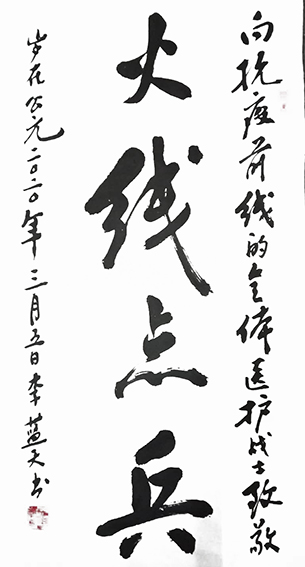 向抗疫前线的全体医护战士致敬
火线点兵
岁在公元二〇二〇年三月五日李蓝天书